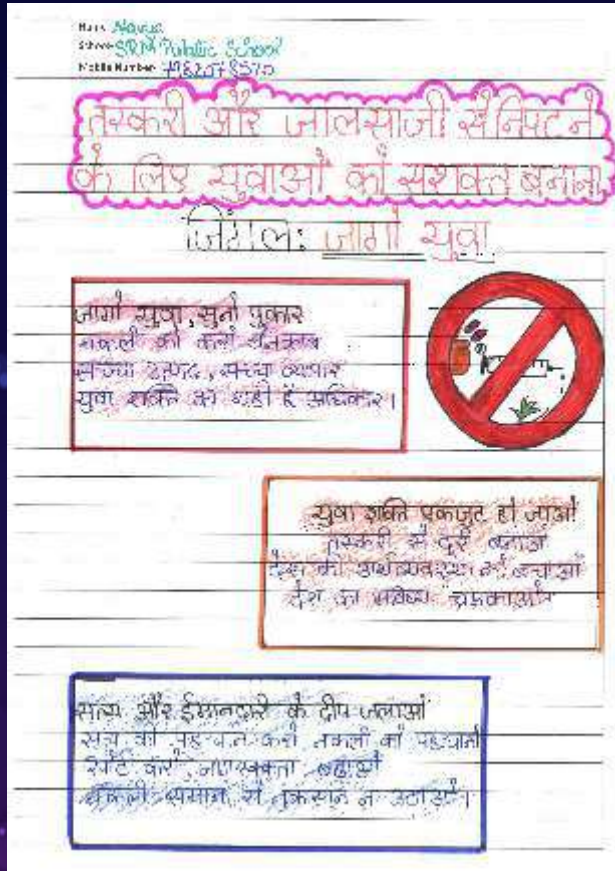 Name
School SRM Public School
Mobile Number
तस्करी और जालसाजी से निपटने
के लिए युवाओं को सशक्त बनाना
जिंगल: जागो युवा
जागो युवा, सुनो पुकार
नकली को करो इनकार
सच्चा, सच्चा व्यापार
युवा शक्ति का यही है अधिकार।
युवा शक्ति एकजुट हो जाओ
तस्करी से दूरी बनाओ
देश की अर्थव्यवस्था को बचाओ
देश का भविष्य चमकाओ।
सत्य और ईमानदारी के दीप जलाओ
सच की पहचान करो नकली को पहचानो
करो, जागरूकता बढ़ाओ
नकली सामान से नुकसान न उठाओ।